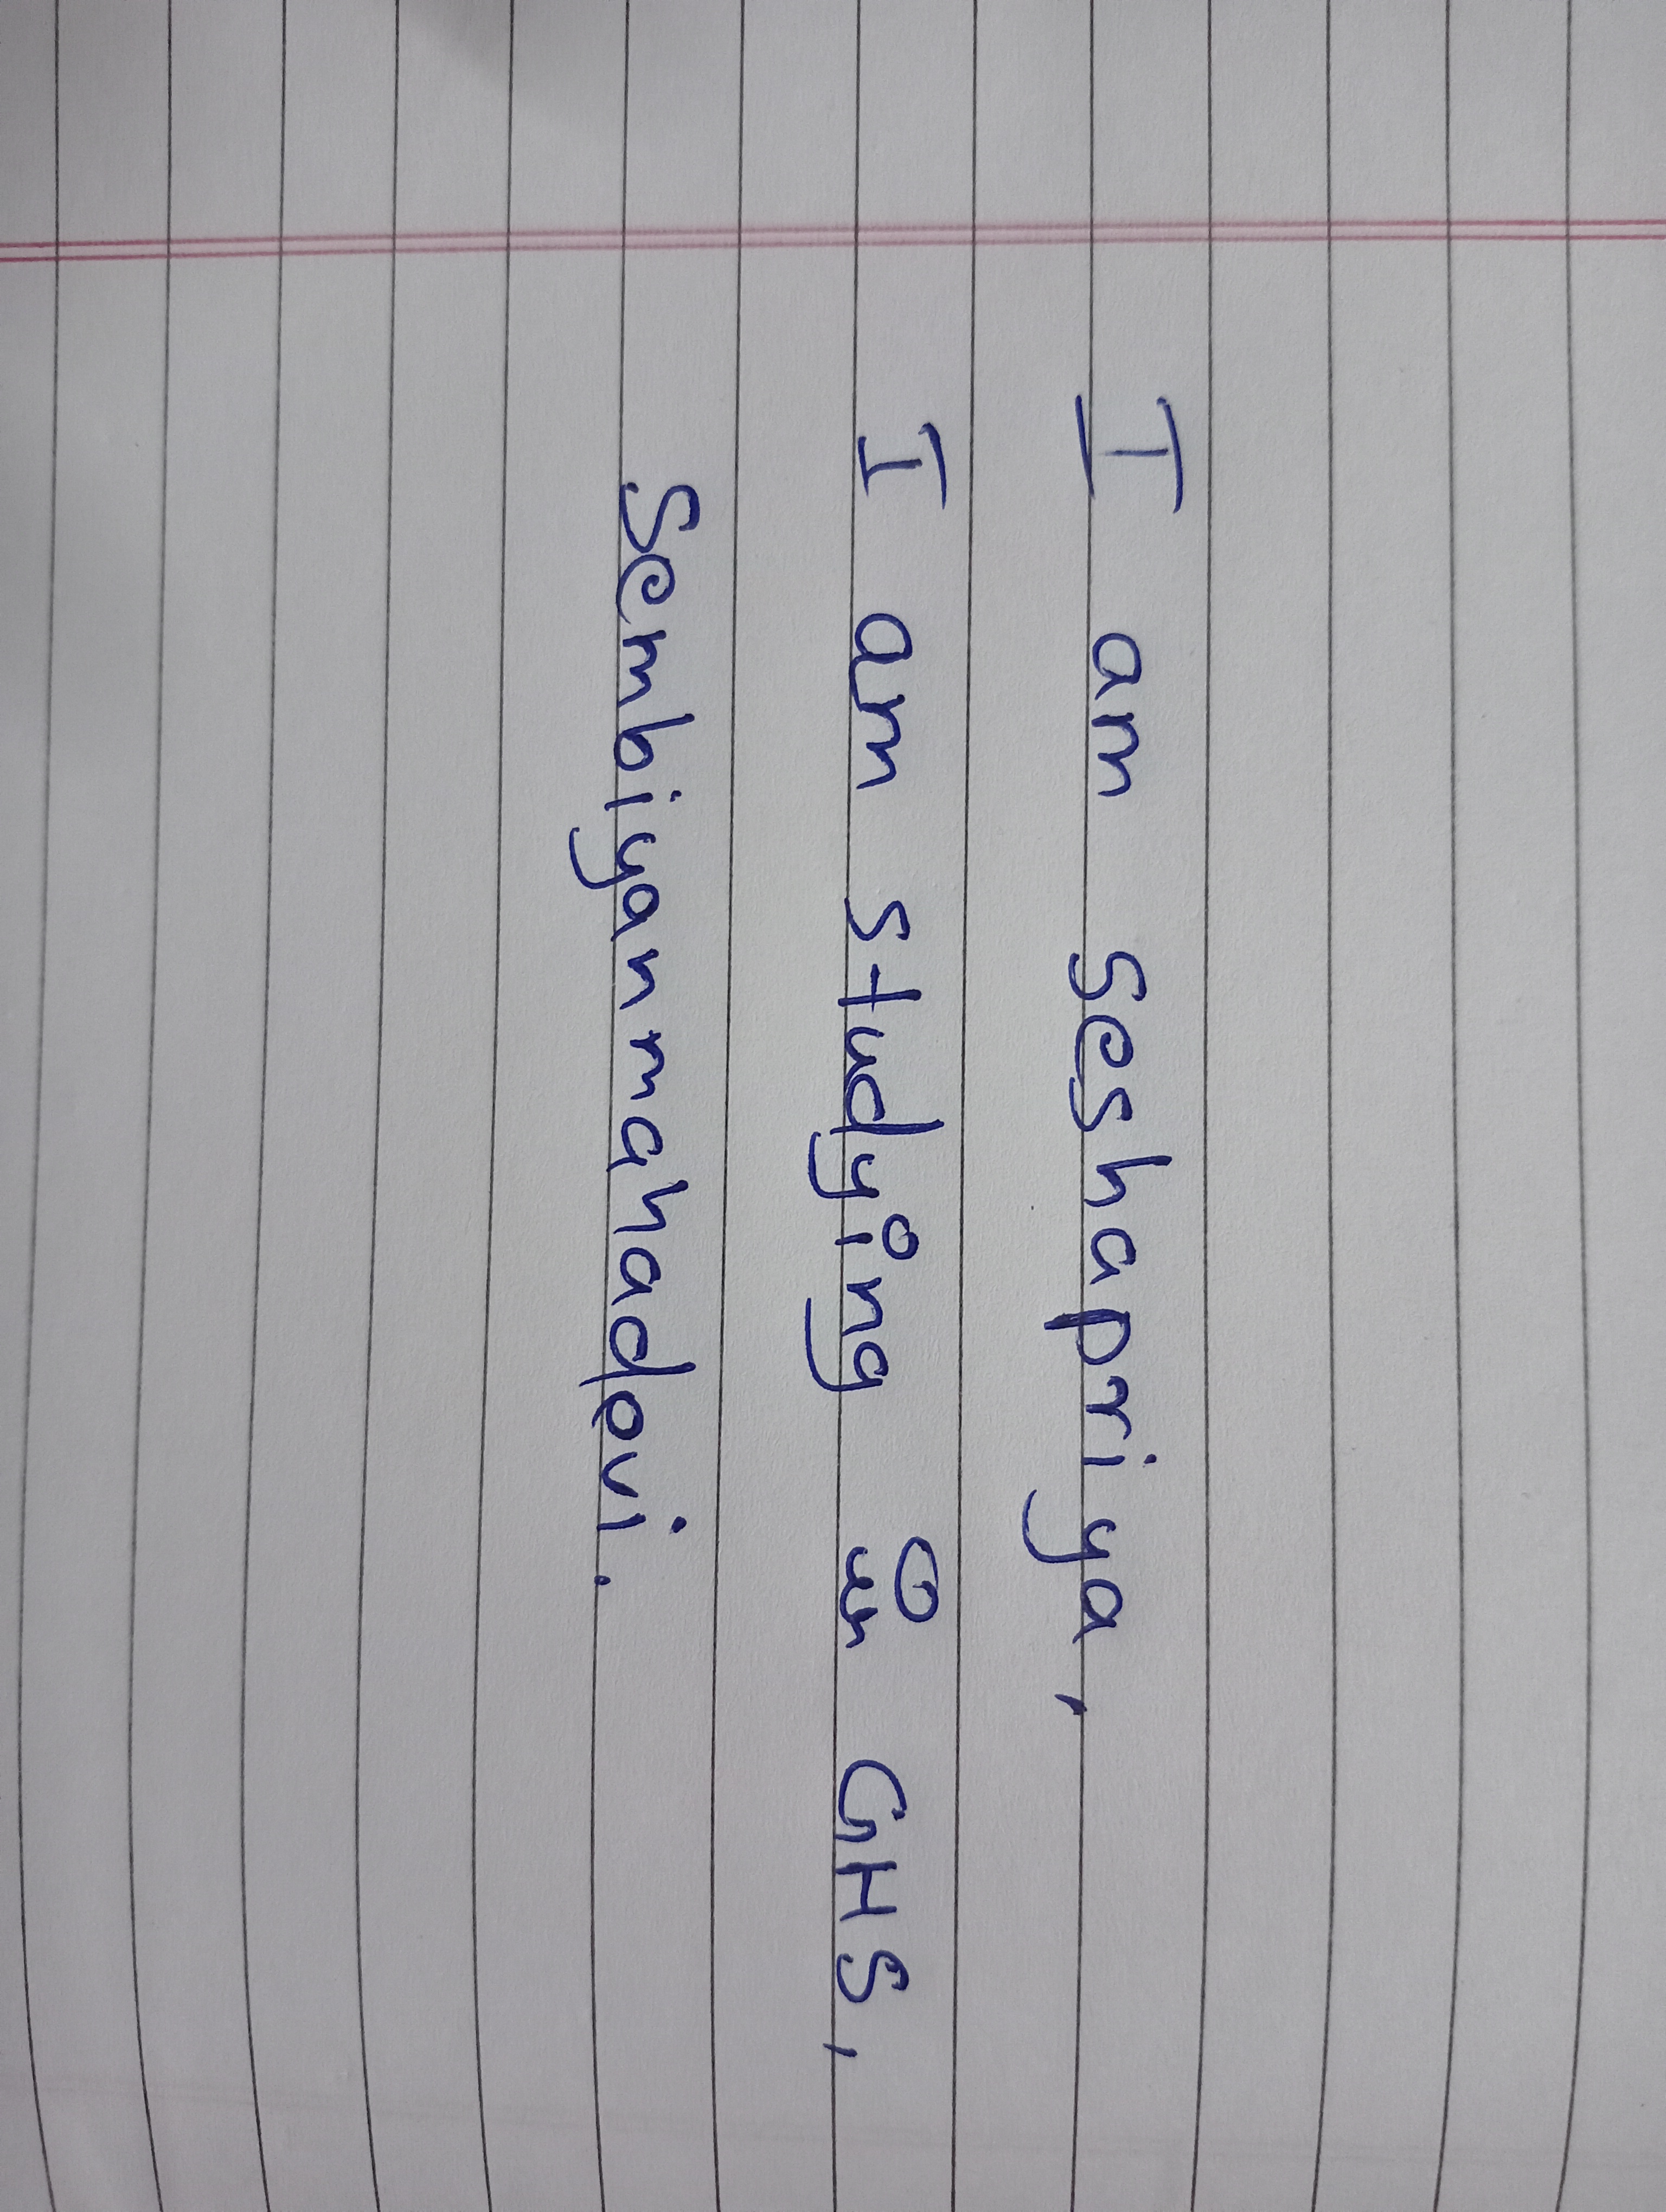 I am Seshapriya,
I am studying in GHS,
Sembiyanmahadevi.